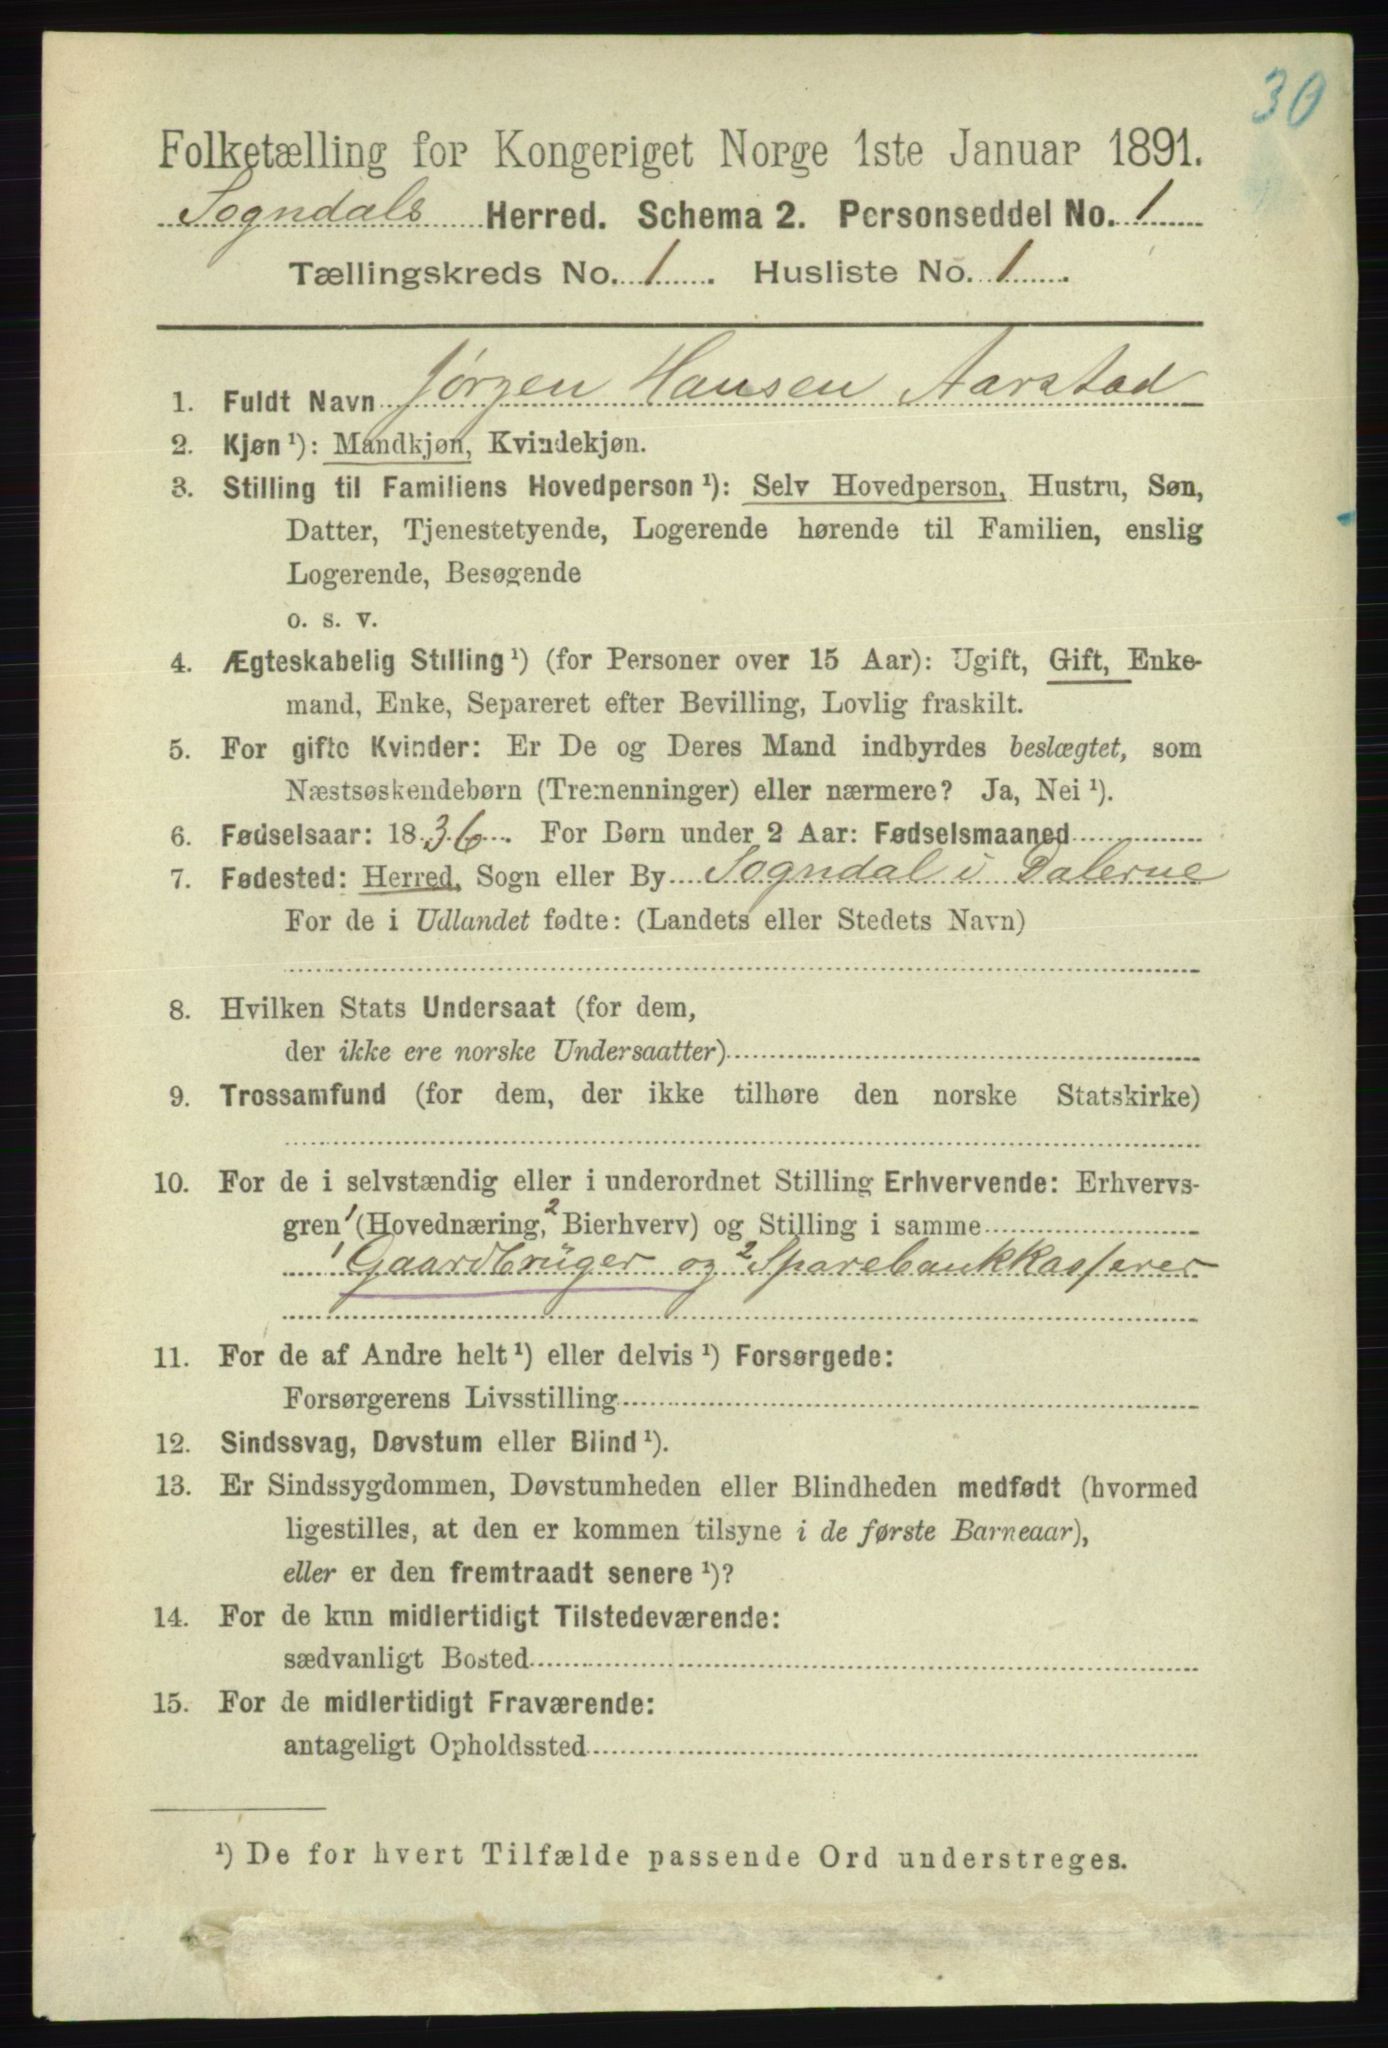 30
Folketælling for Kongeriget Norge 1ste Januar 1891.
Sogndals Herred. Schema 2. Personseddel No. 1
Tællingskreds No. 1. Husliste No. 1.
1. Fuldt Navn Jørgen Hansen Aarstad
2. Kjøn¹): Mandkjøn, Kvindekjøn.
3. Stilling til Familiens Hovedperson¹): Selv Hovedperson, Hustru, Søn,
Datter, Tjenestetyende, Logerende hørende til Familien, enslig
Logerende, Besøgende
o. s. v.
4. Ægteskabelig Stilling¹) (for Personer over 15 Aar): Ugift, Gift, Enke-
mand, Enke, Separeret efter Bevilling, Lovlig fraskilt.
5. For gifte Kvinder: Er De og Deres Mand indbyrdes beslægtet, som
Næstsøskendebørn (Tremenninger) eller nærmere? Ja, Nei¹).
6. Fødselsaar: 1836. For Børn under 2 Aar: Fødselsmaaned
7. Fødested: Herred, Sogn eller By Sogndal i Dalerne
For de i Udlandet fødte: (Landets eller Stedets Navn)
8. Hvilken Stats Undersaat (for dem,
der ikke ere norske Undersaatter)
9. Trossamfund (for dem, der ikke tilhøre den norske Statskirke)
10. For de i selvstændig eller i underordnet Stilling Erhvervende: Erhvervs-
gren ¹ (Hovednæring, ² Bierhverv) og Stilling i samme
¹ Gaardbrüger og ² Sparebankkasserer
11. For de af Andre helt¹) eller delvis¹) Forsørgede:
Forsørgerens Livsstilling
12. Sindssvag, Døvstum eller Blind¹).
13. Er Sindssygdommen, Døvstumheden eller Blindheden medfødt (hvormed
ligestilles, at den er kommen tilsyne i de første Barneaar),
eller er den fremtraadt senere¹)?
14. For de kun midlertidigt Tilstedeværende:
sædvanligt Bosted
15. For de midlertidigt Fraværende:
antageligt Opholdssted
¹) De for hvert Tilfælde passende Ord understreges.